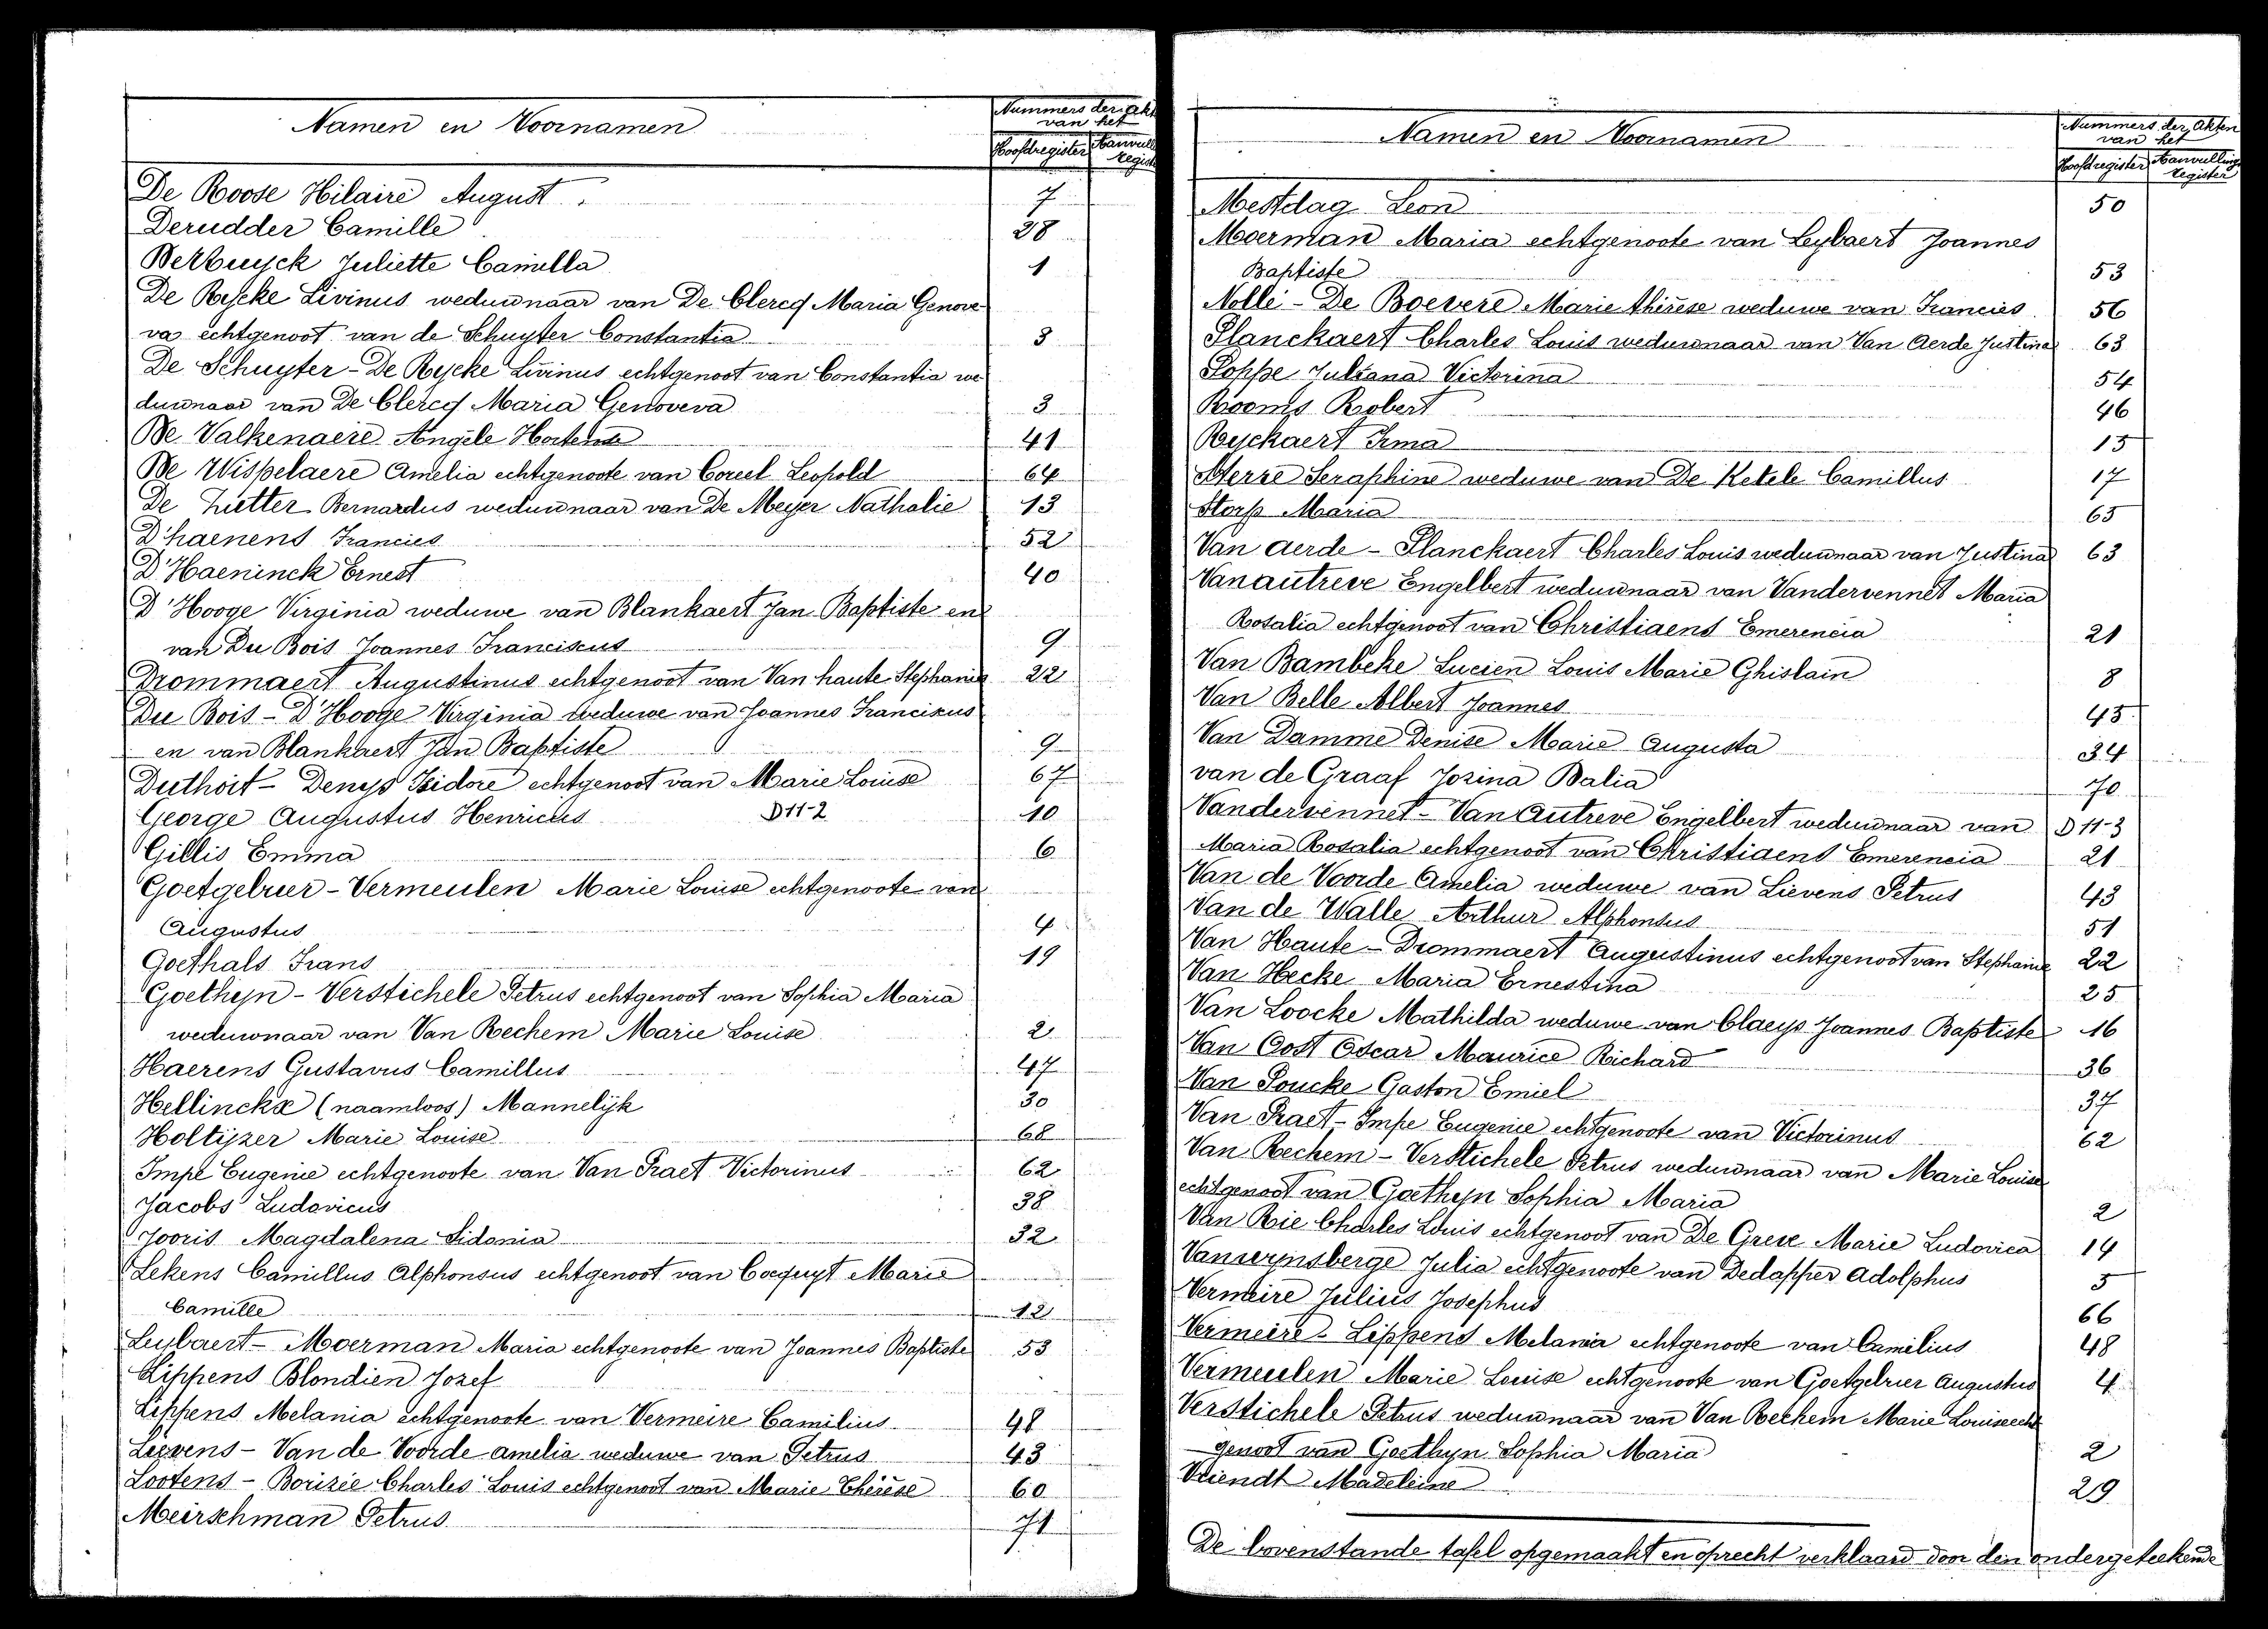 Namen en Voornamen
Nummers der Akt
van het
Hoofdregister Aanvull
Regist
De Roose Hilaire August 7
Derudder Camille 28
Derbuyck Juliette Camilla 1
De Rycke Livinus weduwnaar van De Clercq Maria Genove
va echtgenoot van de Schuyter Constantia 3
De Schuyter - De Rycke Livinus echtgenoot van Constantia we
duwnaar van De Clercq Maria Genoveva 3
De Valkenaere Angèle Hortense 41
De Wispelaere Amelia echtgenoote van Coreel Leopold 64
De Zutter Bernardus weduwnaar van De Meyer Nathalie 13
D'haenens Francies 52
D'Haeninck Ernest 40
D'Hooge Virginia weduwe van Blankaert Jan Baptiste en
van Du Bois Joannes Franciscus 9
Drommaert Augustinus echtgenoot van Van haute Stephanie 22
Du Bois - D'Hooge Virginia weduwe van Joannes Franciskus
en van Blankaert Jan Baptiste 9
Duthoit - Denys Isidore echtgenoot van Marie Louise 67
George Augustus Henricus D11-2 10
Gillis Emma 6
Goetgebuer - Vermeulen Marie Louise echtgenoote van
Augustus 4
Goethals Frans 19
Goethyn - Verstichele Petrus echtgenoot van Sophia Maria
weduwnaar van Van Rechem Marie Louise 2
Haerens Gustavus Camillus 47
Hellinckx (naamloos) Mannelijk 30
Holtijzer Marie Louise 68
Impe Eugenie echtgenoote van Van Praet Victorinus 62
Jacobs Ludovicus 38
Jooris Magdalena Sidonia 32
Lekens Camillus Alphonsus echtgenoot van Coequyt Marie
Camille 12
Leybaert - Moerman Maria echtgenoote van Joannes Baptiste 53
Lippens Blondien Jozef
Lippens Melania echtgenoote van Vermeire Camilius 48
Lievens - Van de Voorde Amelia weduwe van Petrus 43
Lootens - Borizée Charles Louis echtgenoot van Marie Thérèse 60
Meirschman Petrus 71
Namen en Voornamen
Nummers der Akten
van het
Hoofdregister Aanvullings
Register
Mestdag Leon 50
Moerman Maria echtgenoote van Leybaert Joannes
Baptiste 53
Nolle - De Boevere Marie thérèse weduwe van Francies 56
Planckaert Charles Louis weduwnaar van Van Aerde Justina 63
Poppe Juliana Victorina 54
Rooms Robert 46
Ryckaert Irma 15
Sterre Seraphine weduwe van De Ketele Camillus 17
Storp Maria 65
Van Aerde - Planckaert Charles Louis weduwnaar van Justina 63
Vanautreve Engelbert weduwnaar van Vandervennet Maria
Rosalia echtgenoot van Christiaens Emerencia 21
Van Bambeke Lucien Louis Marie Ghislain 8
Van Belle Albert Joannes 45
Van Damme Denise Marie Augusta 34
van de Graaf Jozina Balia 70
Vandervennet - Van Autreve Engelbert weduwnaar van D11-3
Maria Rosalia echtgenoot van Christiaens Emerencia 21
Van de Voorde Amelia weduwe van Lievens Petrus 43
Van de Walle Arthur Alphonsus 51
Van Haute - Drommaert Augustinus echtgenoot van Stephanie 22
Van Hecke Maria Ernestina 25
Van Loocke Mathilda weduwe van Claeys Joannes Baptiste 16
Van Oost Oscar Maurice Richard 36
Van Poucke Gaston Emiel 37
Van Praet - Impe Eugenie echtgenoote van Victorinus 62
Van Rechem - Verstichele Petrus weduwnaar van Marie Louise
echtgenoot van Goethyn Sophia Maria 2
Van Rie Charles Louis echtgenoot van De Greve Marie Ludovica 14
Vanwynsberge Julia echtgenoote van Dedapper Adolphus 5
Vermeire Julius Josephus 66
Vermeire - Lippens Melania echtgenoote van Camilius 48
Vermeulen Marie Louise echtgenoote van Goetgebuer Augustus 4
Verstichele Petrus weduwnaar van Van Rechem Marie Louise echt
genoot van Goethyn Sophia Maria 2
Vriendt Madeleine 29
De bovenstande tafel opgemaakt en oprecht verklaard door den ondergeteekende